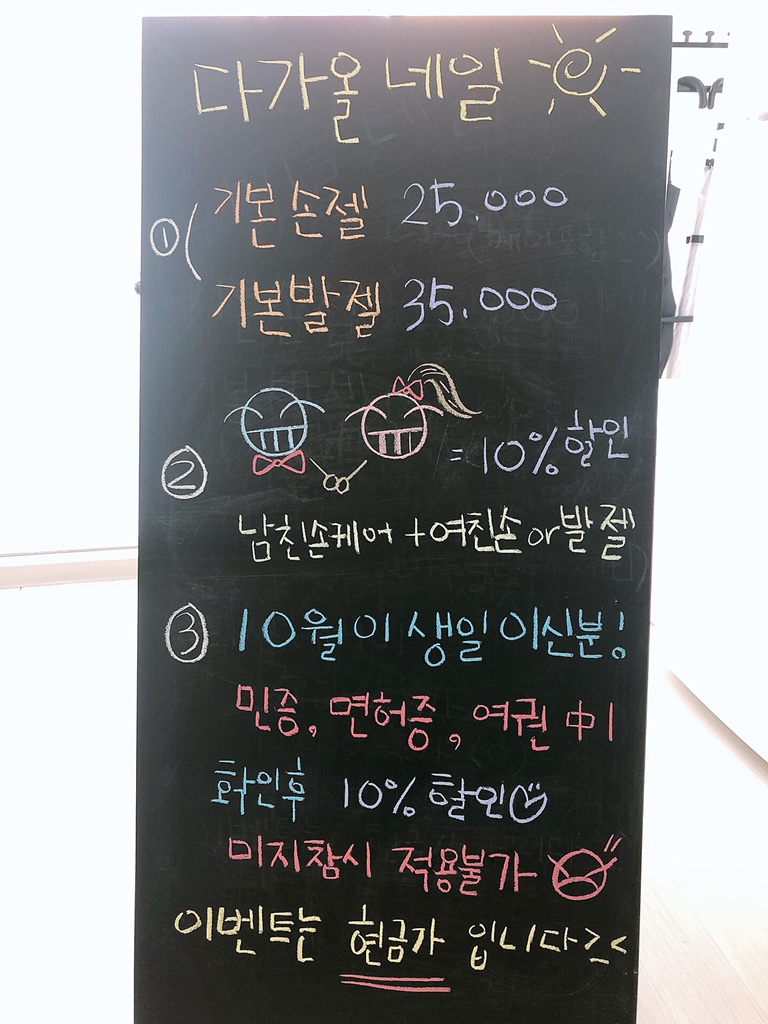 다가올 네일
① 기본 손젤 25.000
(케어포함)
기본발젤 35.000
② = 10% 할인
남친손케어 + 여친손 or 발젤
③ 10월이 생일이신분!
민증, 면허증, 여권 中 1
확인후 10% 할인
미지참시 적용불가
이벤트는 현금가 입니다 >_<